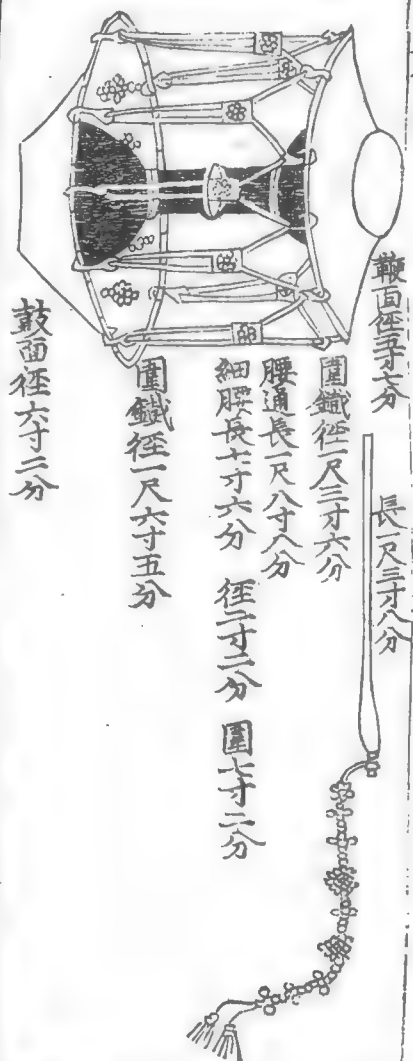 鞭面徑五寸六分
長一尺三寸八分
圍鐵徑一尺三寸六分
腰通長一尺八寸八分
細腰長七寸六分 徑二寸二分 圍七寸二分
圍鐵徑一尺六寸五分
鼓面徑六寸二分